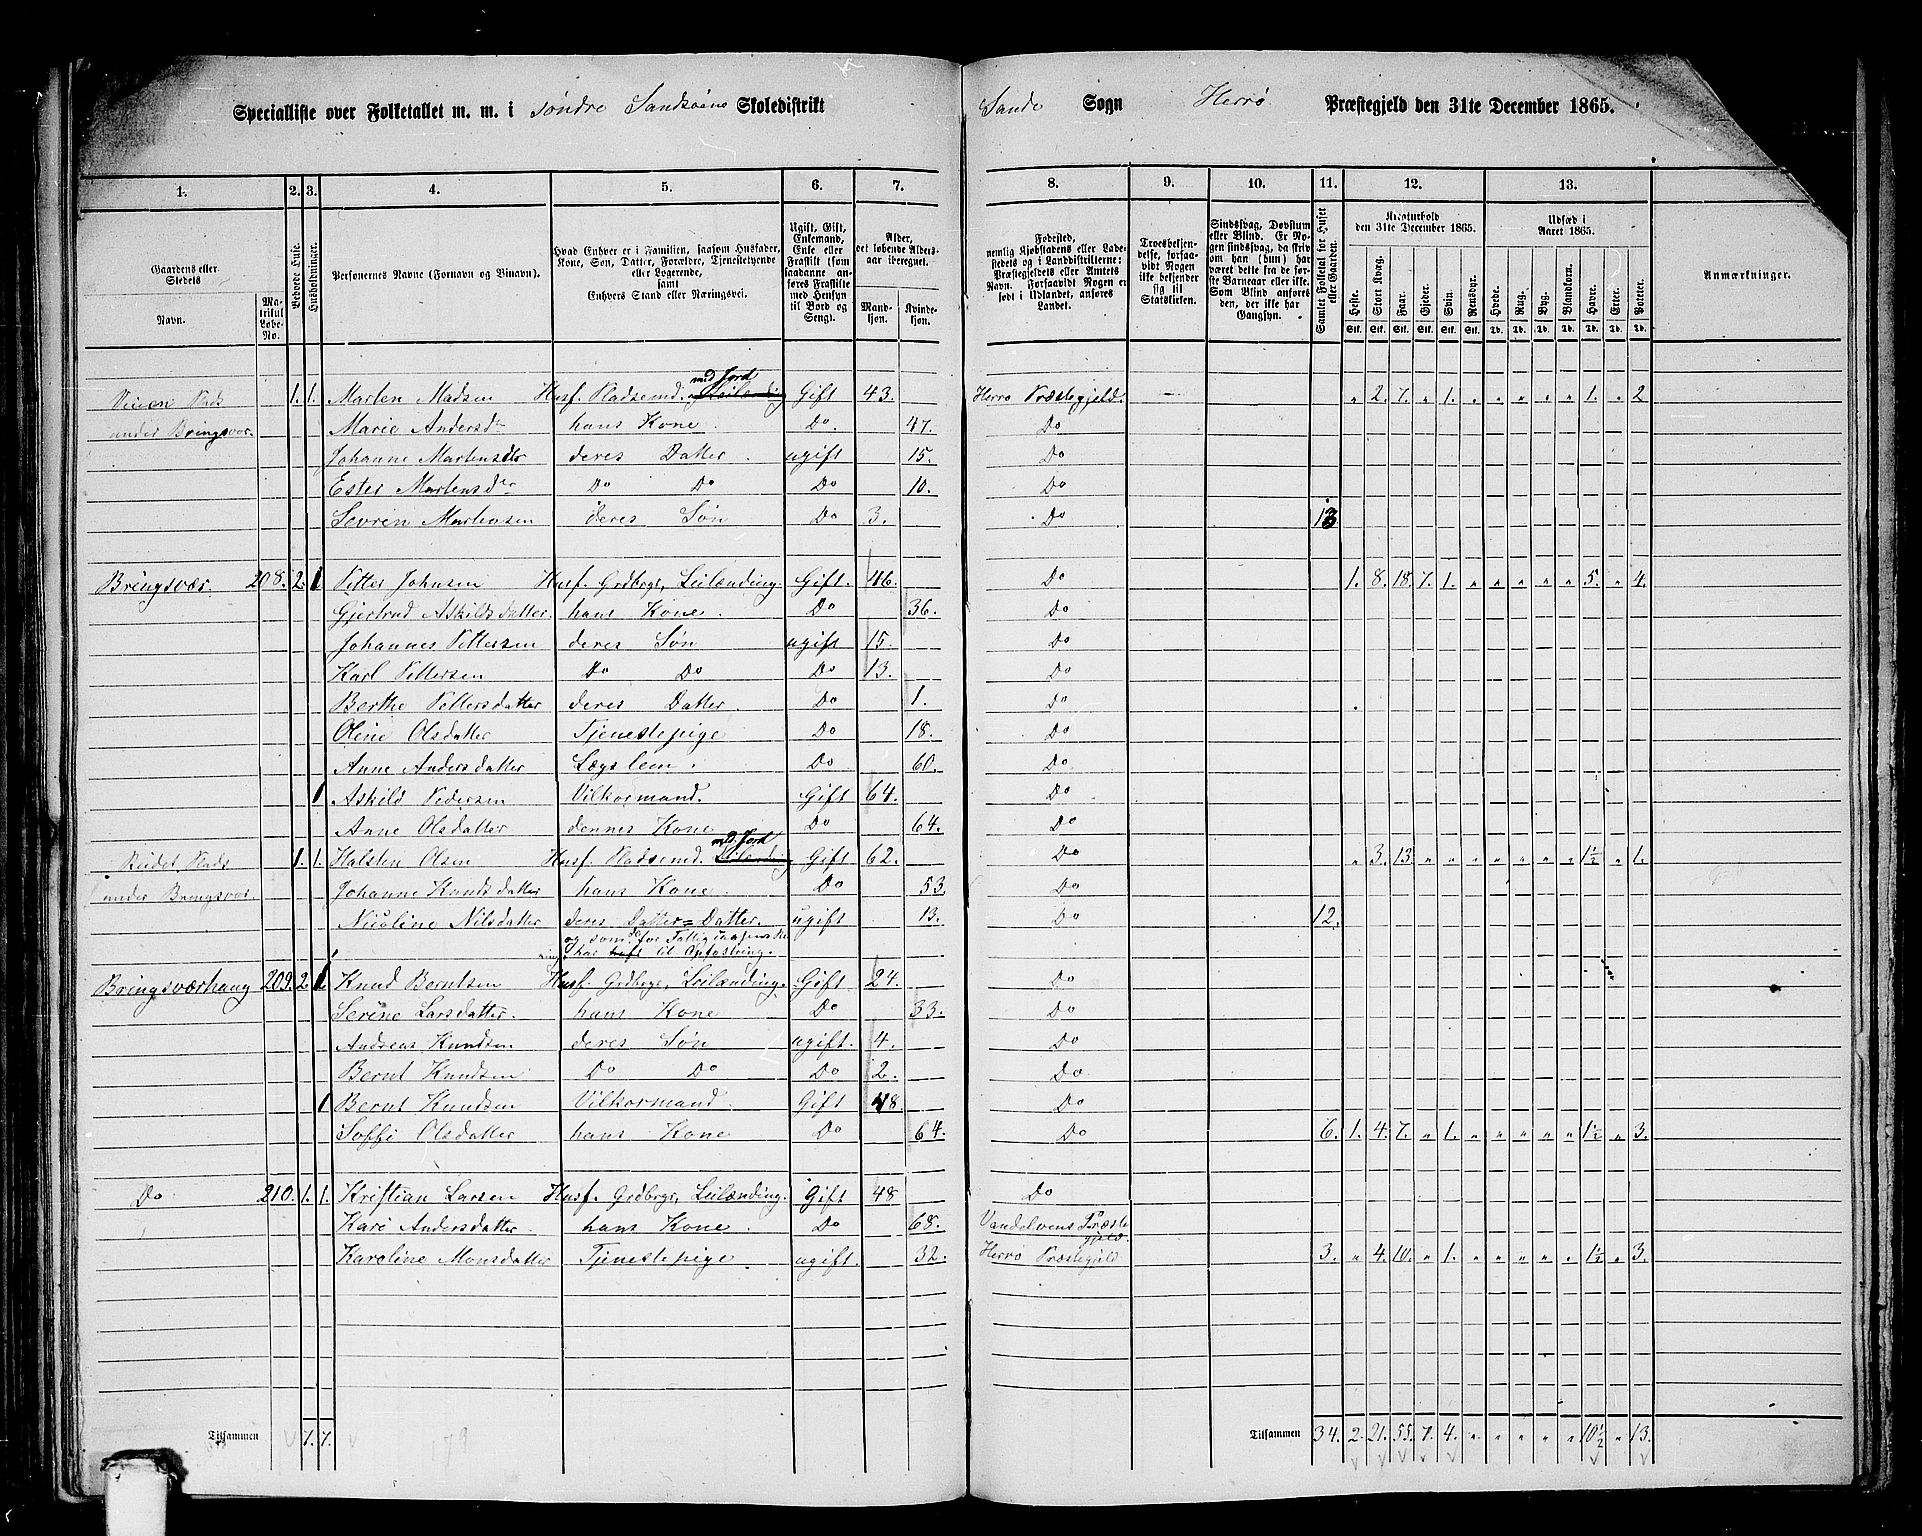 Specialliste over Folketallet m. m. i søndre Sandsøens Skoledistrikt Sande Sogn Herrø Præstegjeld den 31te December 1865.
1. 2. 3. 4. 5. 6. 7. 8. 9. 10. 11. 12. 13.
Gaardens eller Stedets Navn. Matrikul Løbe-No. Beboede Huse. Husholdninger. Personernes Navne (Fornavn og Tilnavn). Hvad Enhver er i Familien, saasom Husfader, Kone, Søn, Datter, Forældre, Tjenestetyende eller Logerende, samt Enhvers Stand eller Næringsvei. Ugift, Gift, Enkemand, Enke eller Fraskilt (som saadanne anføres Fraskilte med Hensyn til Bord og Seng). Alder, det løbende Aldersaar iberegnet. Mandkjøn. Kvindekjøn. Fødested, nemlig Kjøbstadens eller Ladestedets og i Landdistrikterne: Præstegjeldets eller Amtets Navn. Forsaavidt Nogen er født i Udlandet, anføres Landet. Troesbekjendelse, forsaavidt Nogen ikke bekjender sig til Statskirken. Sindssvag, Døvstum eller Blind. Er Nogen sindssvag, da skrives om han (hun) har været dette fra de første Barneaar eller ikke. Som Blind anføres den, der ikke har Gangsyn. Samlet Folketal for Huset eller Gaarden. Kreaturhold den 31te December 1865. Udsæd i Aaret 1865. Anmærkninger.
Heste. Stort Kvæg. Faar. Gjeder. Svin. Rensdyr. Hvede. Rug. Byg. Blandkorn. Havre. Erter. Poteter.
Stk. Stk. Stk. Stk. Stk. Stk. Td. Td. Td. Td. Td. Td. Td.
med Jord
Plads 1. 1. Marten Madsen Husf. Pladsemd. Leilænding Gift 43. Herrø Præstegjeld. " 2. 7. " 1. " " " " " 1. " 2
under Bringsvor. Marie Andersdtr hans Kone. Do. 47. Do
Johanne Martensdtr deres Datter. ugift 15. Do
Ester Martensdtr Do Do Do 10. Do
Sevrin Martensen deres Søn Do 3. Do
Bringsvær. 208. 2. 1 Petter Johnsen Husf. Grdbrgr, Leilænding. Gift. 46. Do 1. 8. 18. 7. 1. " " " " " 5. " 4.
Gjertrud Askildsdatter. hans Kone. Do 36. Do
Johannes Pettersen deres Søn ugift 15. Do
Karl Pettersen Do Do Do 13. Do
Berthe Pettersdatter deres Datter. Do 1. Do
Oline Olsdatter Tjenestepige Do 18. Do
Anne Andersdatter Lægslem. Do 60. Do
1 Askild Pedersen Vilkormand. Gift 64. Do
Anne Olsdatter dennes Kone Do 64. Do
med Jord
Plads 1. 1. Halsten Olsen Husf. Pladsemd. Leilænding Gift 62. Do " 3. 13. " " " " " " " 1½ " 1.
under Bringsvor. Johanne Knudsdatter hans Kone. Do 53. Do
Nicoline Nilsdatter deres Datter=Datter. ugift 13. Do 12.
og som for Fattig
har til Opfostring.
Bringsværhaug 209. 2 1 Knud Berntsen Husf. Grdbrgr, Leilænding. Gift 24. Do
Serine Larsdatter. hans Kone Do 33. Do
Andreas Knudsen deres Søn ugift. 4. Do
Bernt Knudsen Do Do Do 2. Do
1 Bernt Knudsen Vilkormand. Gift 48. Do
Soffi Olsdatter hans Kone Do 64. Do 6. 1. 4. 7. " 1. " " " " " 1½ " 3.
Do 210. 1. 1. Kristian Larsen Husf. Grdbrgr, Leilænding. Gift 48 Do
Kari Andersdatter. hans Kone. Do 68. Vandelvens Præstegjeld.
Karoline Monsdatter Tjenestepige. ugift. 32. Herrø Præstegjeld 3. " 4. 10. " 1. " " " " " 1½ " 3.
Tilsammen 7. 7. 179 Tilsammen 34. 2. 21. 55. 7. 4. " " " " " 10½ " 13.